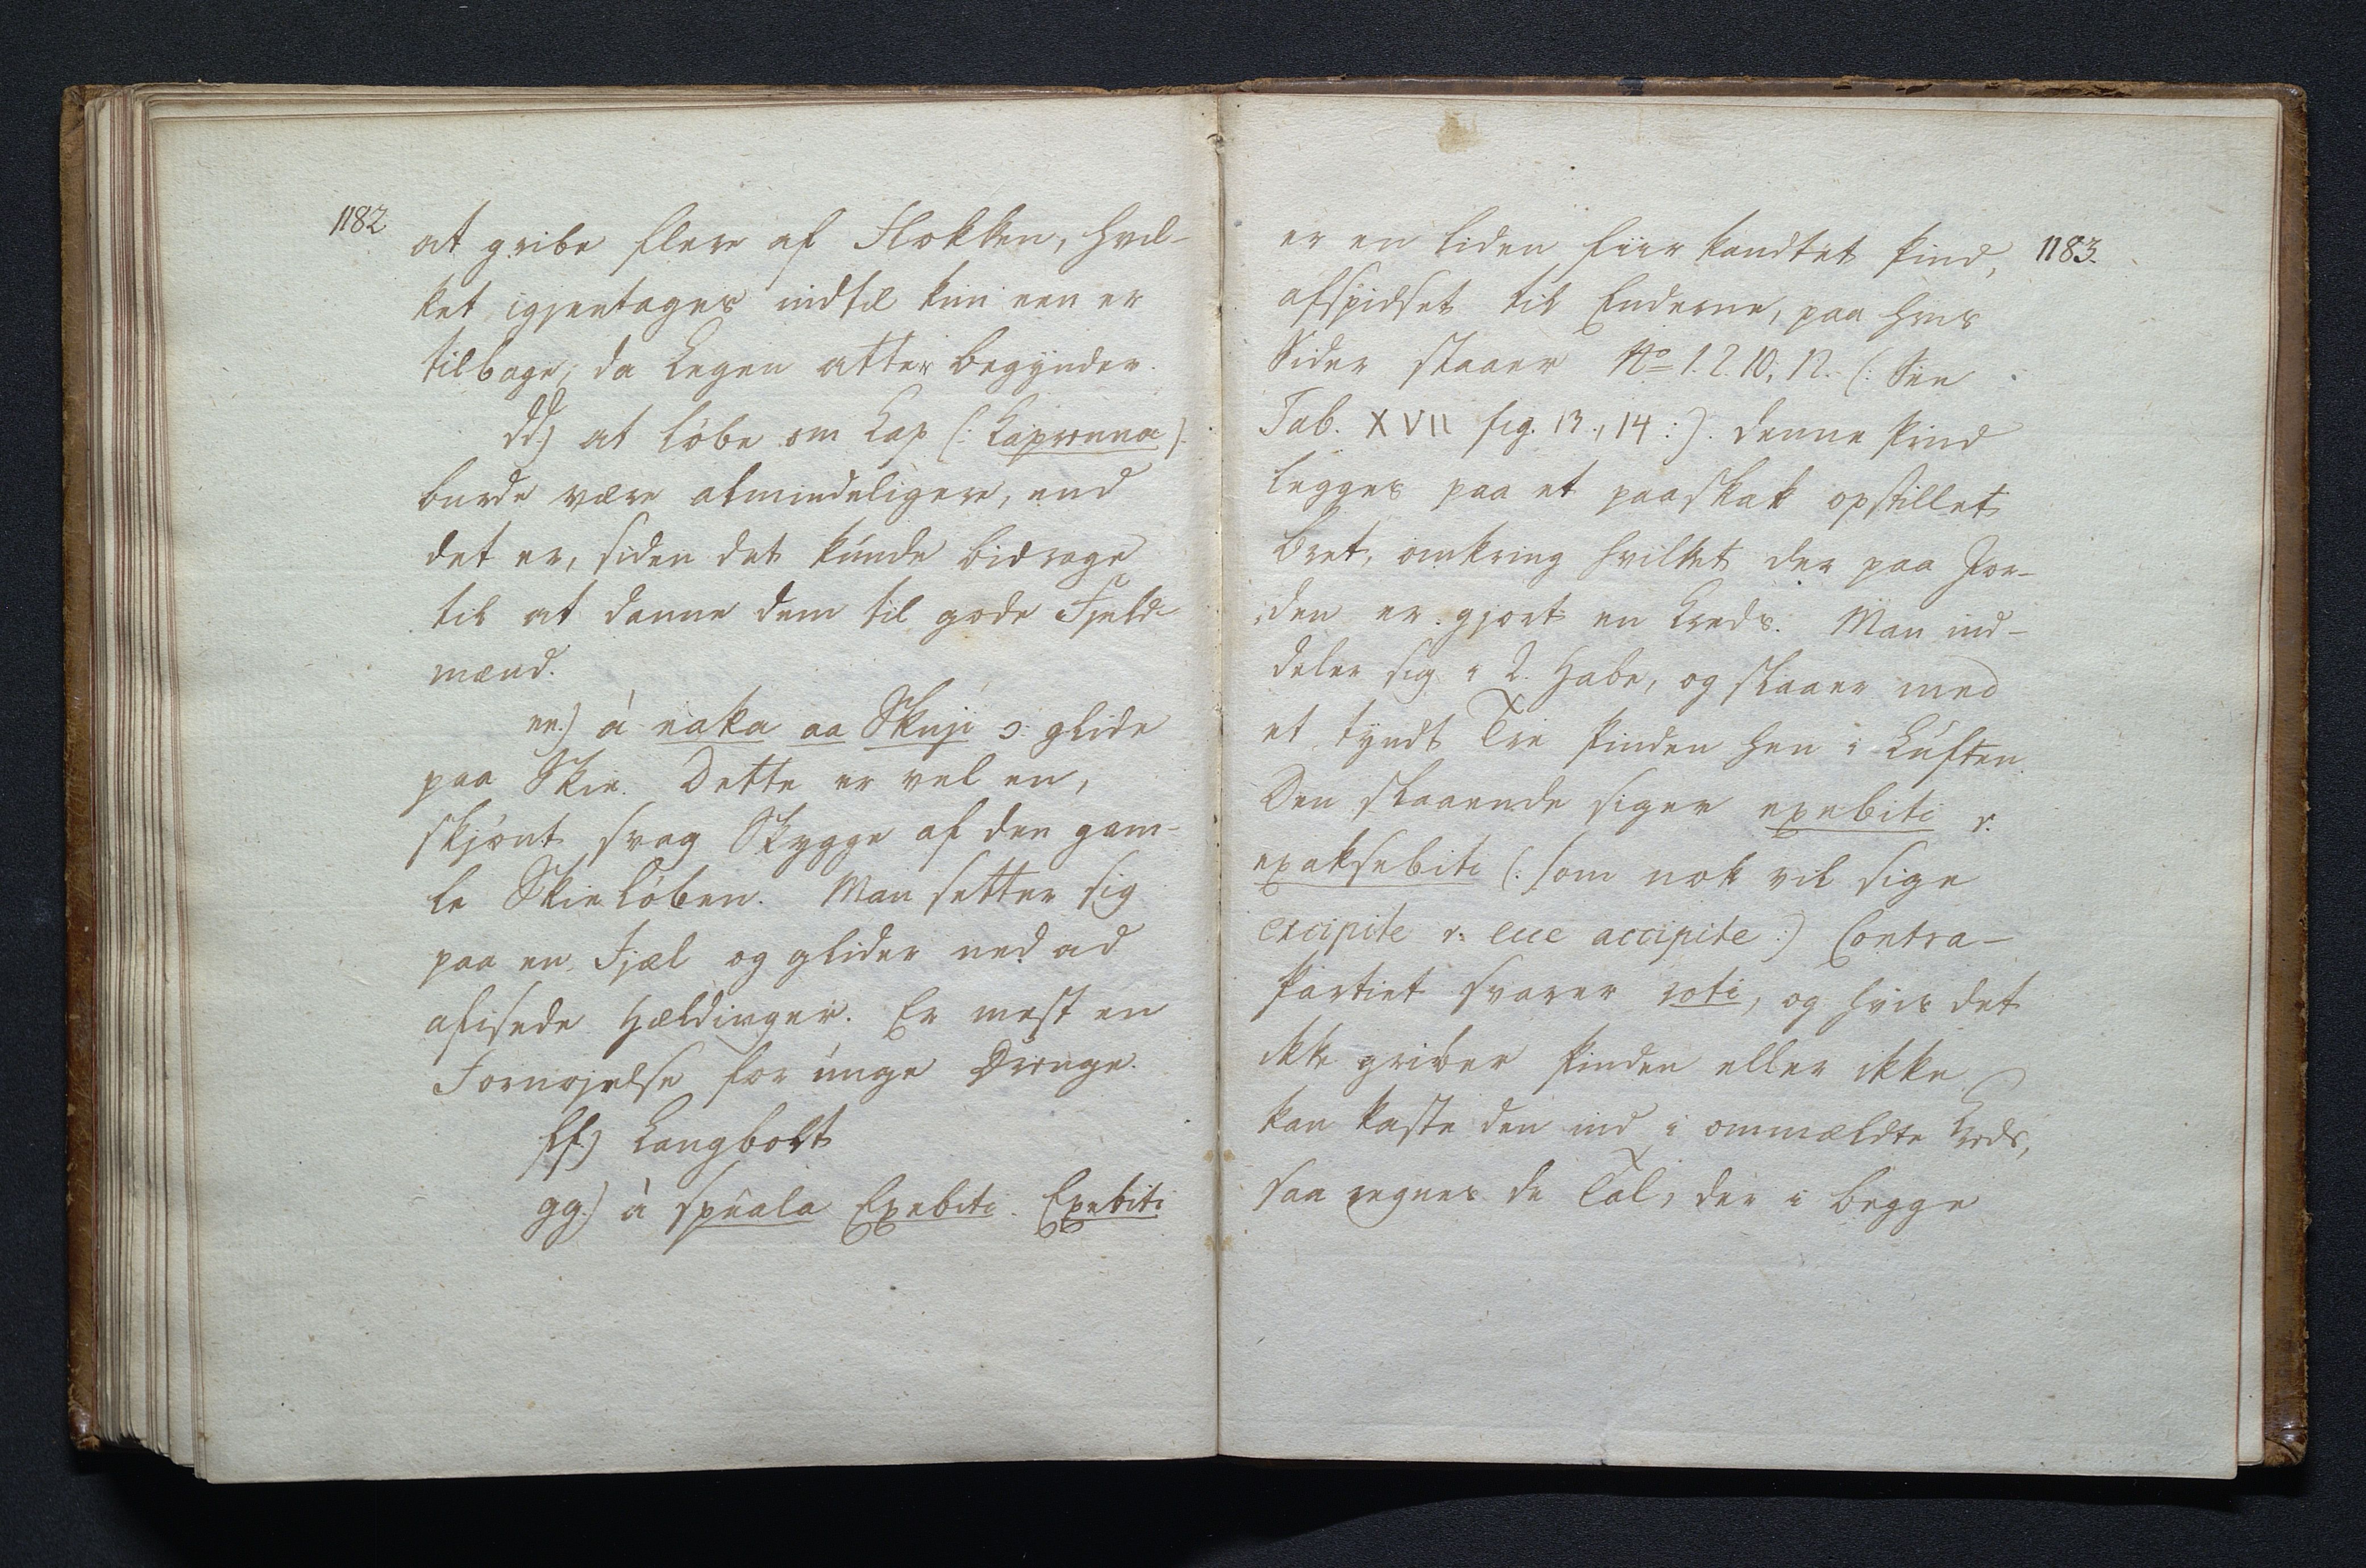 1182
at gribe flere af Flokken, hvil-
ket igjentages indtil kun een er
tilbage, da Legen atter begynder.
dd.) at løbe om Kap (: Kaprenna).
burde være almindeligere, end
det er, siden det kunde bidrage
til at danne dem til gode Fjeld-
mænd.
ee.) à raka aa Skuji ɔ: glide
paa Skie. Dette er vel en,
skjønt svag Skygge af den gam-
le Skieløben. Man setter sig
paa en Fjæl og glider ned ad
afisede Heldinger. Er mest en
Fornøjelse for unge Drenge.
ff.) Langbolt
gg.) à spuala Exebiti. Exebiti
1183.
er en liden fiirkandtet Pind,
afspidset til Enderne, paa hvis
Sider staaer No 1. 2. 10, 12. (: See
Tab. XVII fig. 13., 14 :). Denne Pind
legges paa et paaskak opstillet
Bret, omkring hvilket der paa Jor-
den er gjort en Kreds. Man ind-
deler sig i 2. Habe, og slaaer med
et tyndt Træ Pinden hen i Luften.
Den slaaende siger exebiti v.
exaksebiti (: som nok vil sige
excipite v. ecce accipite :) Contra-
Partiet svarer roti, og hvis det
ikke griber Pinden eller ikke
kan kaste den ind i ommældte Kreds,
saa regnes de Tal, der i begge